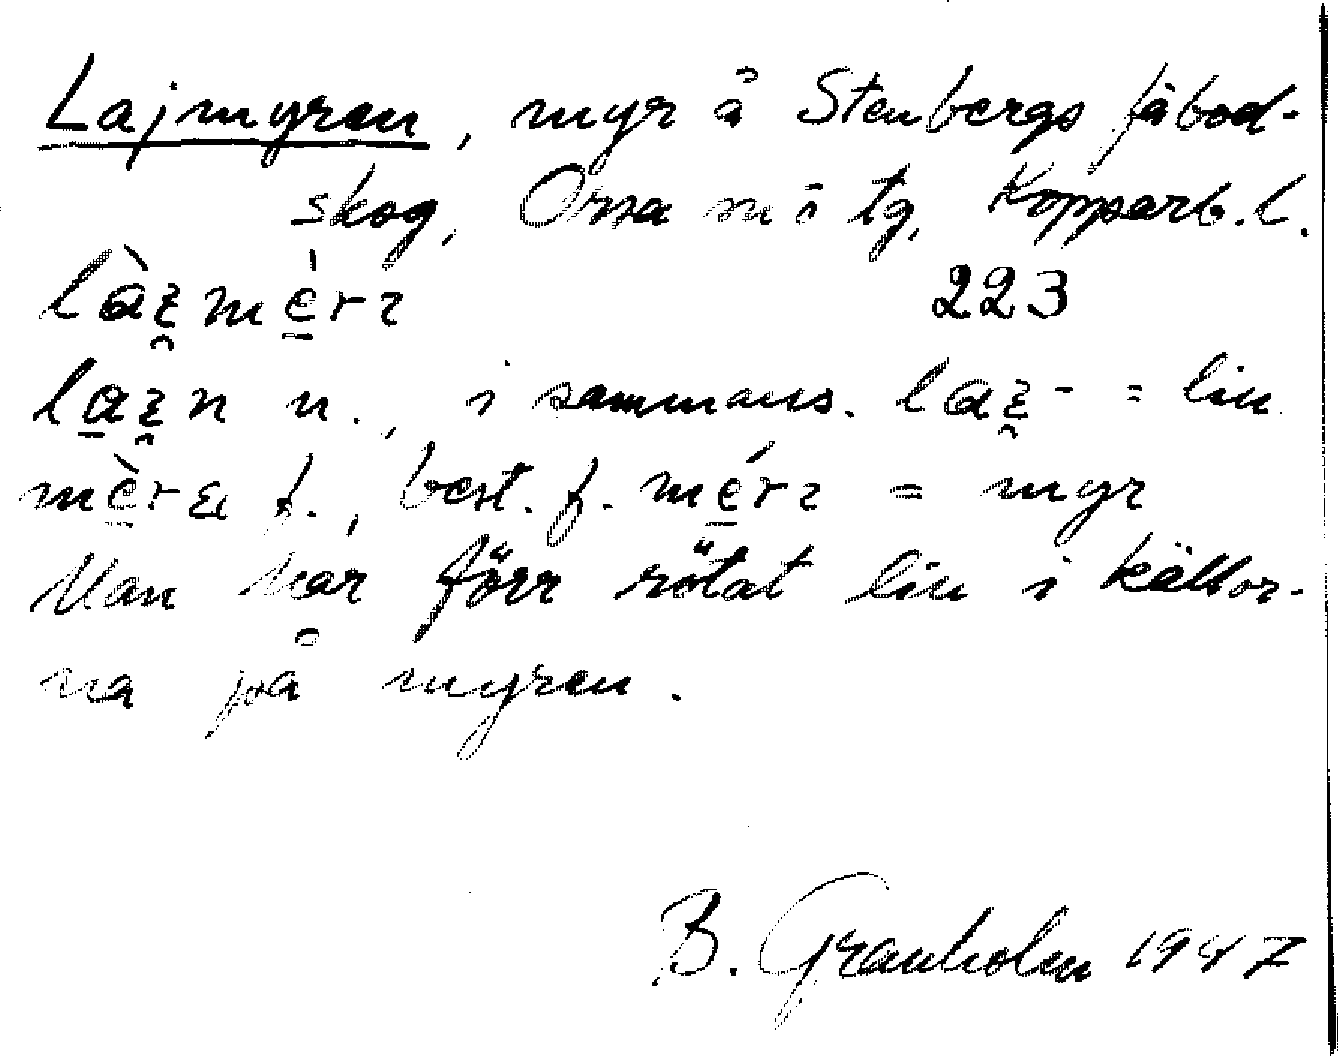 Lajmyren, myr å Stenbergs fäbod-
skog, Orsa sn o tg, Kopparb. l.
223
n., i sammans. = lin
f., best. f. = myr
Man har förr rötat lin i källor-
na på myren.
B. Granholm 1947